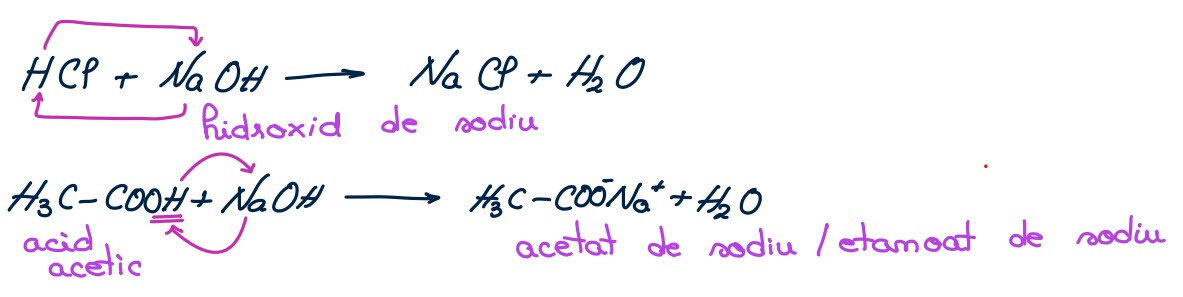 HCl + NaOH → NaCl + H₂O
hidroxid de sodiu
H₃C-COOH + NaOH → H₃C-COO⁻Na⁺ + H₂O
acid acetic
acetat de sodiu / etanoat de sodiu